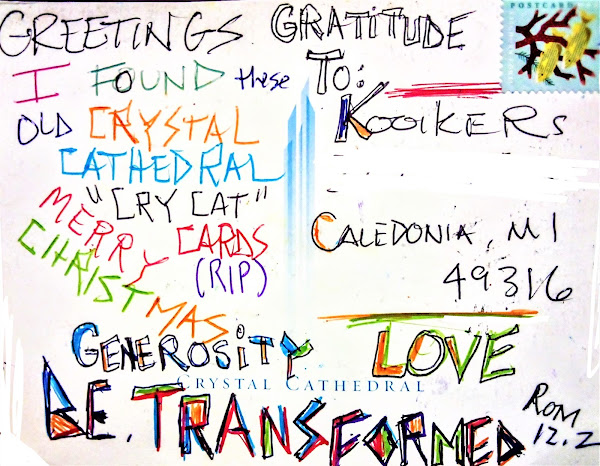 GREETINGS GRATITUDE
POSTCARD
I FOUND these
OLD CRYSTAL
CATHEDRAL
"CRY CAT"
CARDS
(RIP)
MERRY
CHRISTMAS
TO:
KOOIKERS
CALEDONIA, MI
49316
GENEROSITY LOVE
CRYSTAL CATHEDRAL
BE.TRANSFORMED
ROM
12.2